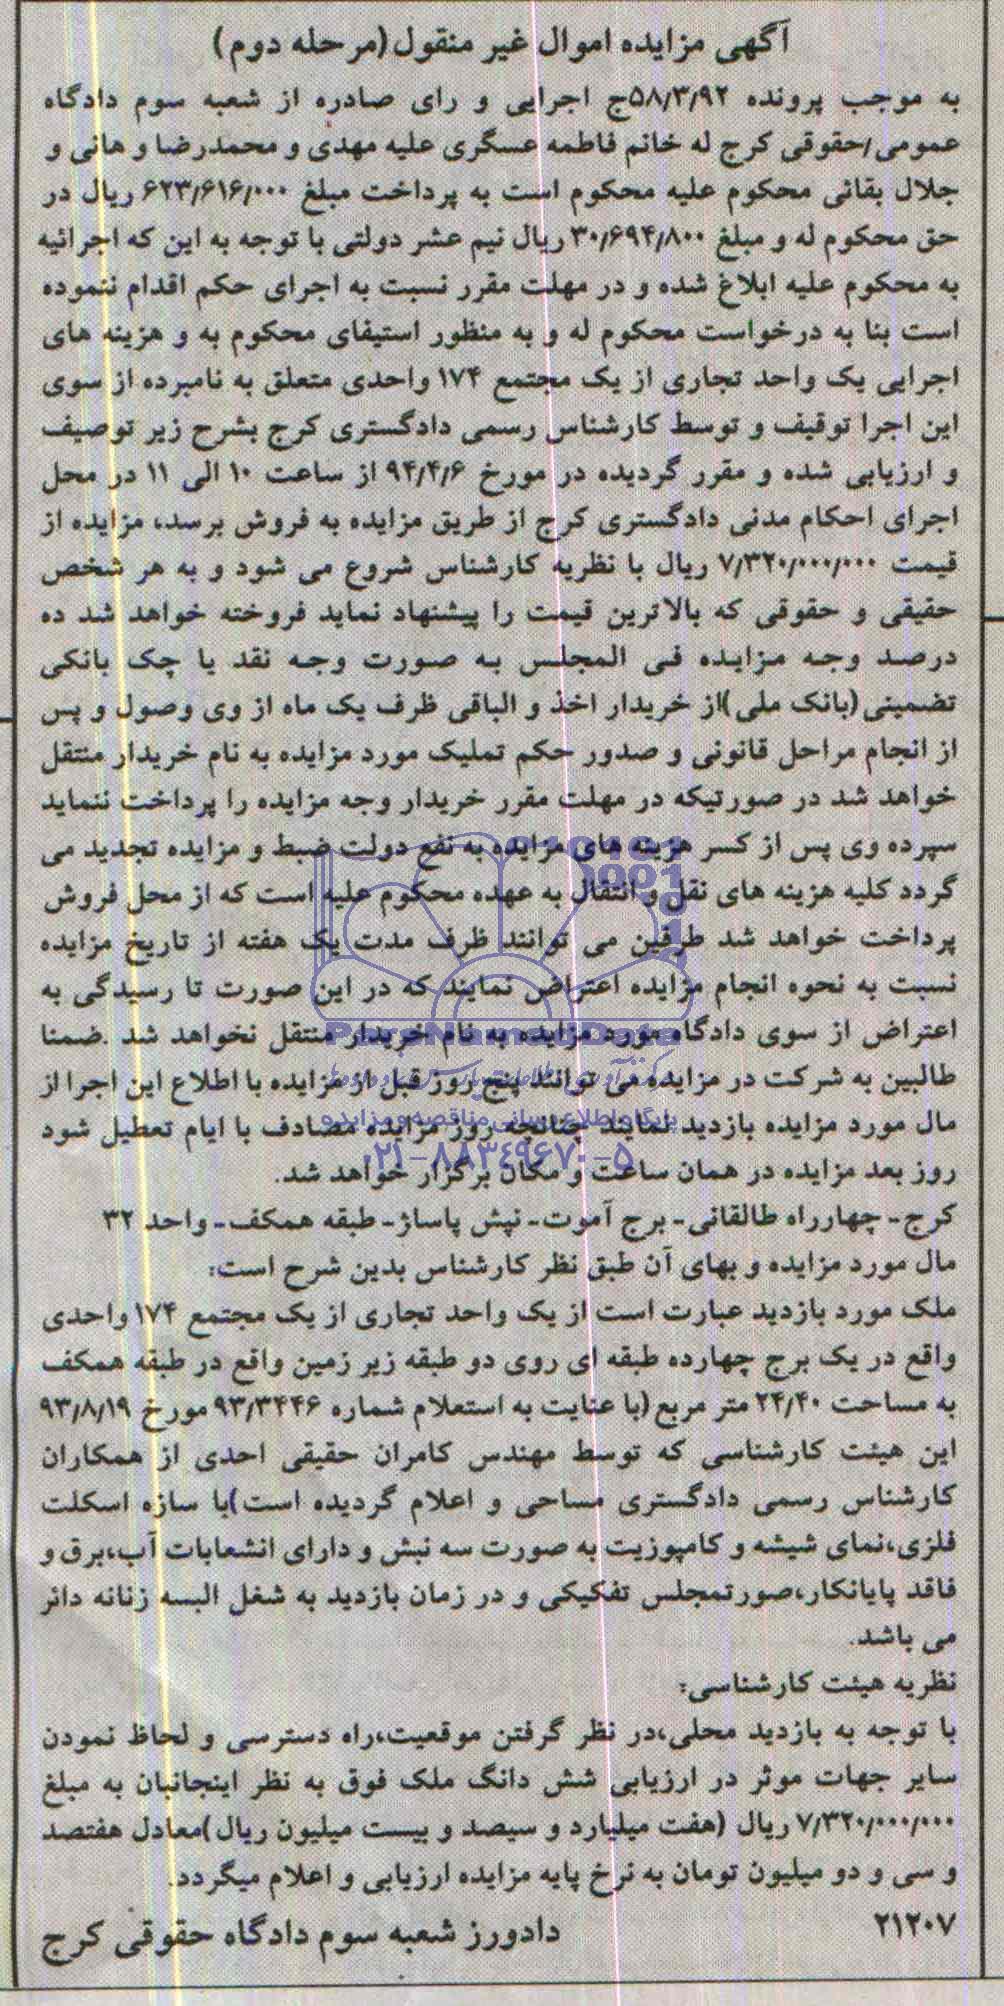 آگهی مزایده اموال غیر منقول(مرحله دوم)
به موجب پرونده ۵۸/۳/۹۲ج اجرایی و رای صادره از شعبه سوم دادگاه
عمومی/حقوقی کرج له خانم فاطمه عسگری علیه مهدی و محمدرضا و هانی و
جلال بقائی محکوم علیه محکوم است به پرداخت مبلغ ۶۲۳/۶۱۶/۰۰۰ ریال در
حق محکوم له و مبلغ ۳۰/۶۹۴/۸۰۰ ریال نیم عشر دولتی با توجه به این که اجرائیه
به محکوم علیه ابلاغ شده و در مهلت مقرر نسبت به اجرای حکم اقدام ننموده
است بنا به درخواست محکوم له و به منظور استیفای محکوم به و هزینه های
اجرایی یک واحد تجاری از یک مجتمع ۱۷۴ واحدی متعلق به نامبرده از سوی
این اجرا توقیف و توسط کارشناس رسمی دادگستری کرج بشرح زیر توصیف
و ارزیابی شده و مقرر گردیده در مورخ ۹۴/۴/۶ از ساعت ۱۰ الی ۱۱ در محل
اجرای احکام مدنی دادگستری کرج از طریق مزایده به فروش برسد، مزایده از
قیمت ۷/۳۲۰/۰۰۰/۰۰۰ ریال با نظریه کارشناس شروع می شود و به هر شخص
حقیقی و حقوقی که بالاترین قیمت را پیشنهاد نماید فروخته خواهد شد ده
درصد وجه مزایده فی المجلس به صورت وجه نقد یا چک بانکی
تضمینی(بانک ملی)از خریدار اخذ و الباقی ظرف یک ماه از وی وصول و پس
از انجام مراحل قانونی و صدور حکم تملیک مورد مزایده به نام خریدار منتقل
خواهد شد در صورتیکه در مهلت مقرر خریدار وجه مزایده را پرداخت ننماید
سپرده وی پس از کسر هزینه های مزایده به نفع دولت ضبط و مزایده تجدید می
گردد کلیه هزینه های نقل و انتقال به عهده محکوم علیه است که از محل فروش
پرداخت خواهد شد طرفین می توانند ظرف مدت یک هفته از تاریخ مزایده
نسبت به نحوه انجام مزایده اعتراض نمایند که در این صورت تا رسیدگی به
اعتراض از سوی دادگاه مورد مزایده به نام خریدار منتقل نخواهد شد .ضمنا
طالبین به شرکت در مزایده می توانند پنج روز قبل از مزایده با اطلاع این اجرا از
مال مورد مزایده بازدید نمایند چنانچه روز مزایده مصادف با ایام تعطیل شود
روز بعد مزایده در همان ساعت و مکان برگزار خواهد شد.
کرج- چهارراه طالقانی- برج آموت- نپش پاساژ- طبقه همکف- واحد ۳۲
مال مورد مزایده و بهای آن طبق نظر کارشناس بدین شرح است:
ملک مورد بازدید عبارت است از یک واحد تجاری از یک مجتمع ۱۷۴ واحدی
واقع در یک برج چهارده طبقه ای روی دو طبقه زیر زمین واقع در طبقه همکف
به مساحت ۲۴/۴۰ متر مربع(با عنایت به استعلام شماره ۹۳/۳۴۴۶ مورخ ۹۳/۸/۱۹
این هیئت کارشناسی که توسط مهندس کامران حقیقی احدی از همکاران
کارشناس رسمی دادگستری مساحی و اعلام گردیده است)با سازه اسکلت
فلزی،نمای شیشه و کامپوزیت به صورت سه نبش و دارای انشعابات آب،برق و
فاقد پایانکار،صورتمجلس تفکیکی و در زمان بازدید به شغل البسه زنانه دائر
می باشد.
نظریه هیئت کارشناسی:
با توجه به بازدید محلی،در نظر گرفتن موقعیت،راه دسترسی و لحاظ نمودن
سایر جهات موثر در ارزیابی شش دانگ ملک فوق به نظر اینجانبان به مبلغ
۷/۳۲۰/۰۰۰/۰۰۰ ریال (هفت میلیارد و سیصد و بیست میلیون ریال)معادل هفتصد
و سی و دو میلیون تومان به نرخ پایه مزایده ارزیابی و اعلام میگردد.
۲۱۲۰۷ دادورز شعبه سوم دادگاه حقوقی کرج
ParsNamadData
پایگاه اطلاع رسانی مناقصه و مزایده
۰۲۱-۸۸۳۴۹۶۷۰-۵